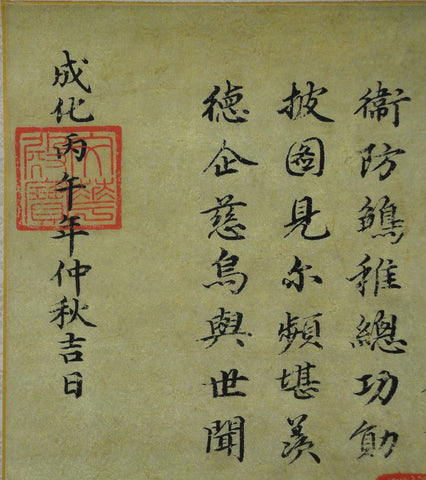 衛防稚總功勛
披圖見尔頻堪羨
德企慈烏與世聞
成化丙午年仲秋吉日
文華殿寶